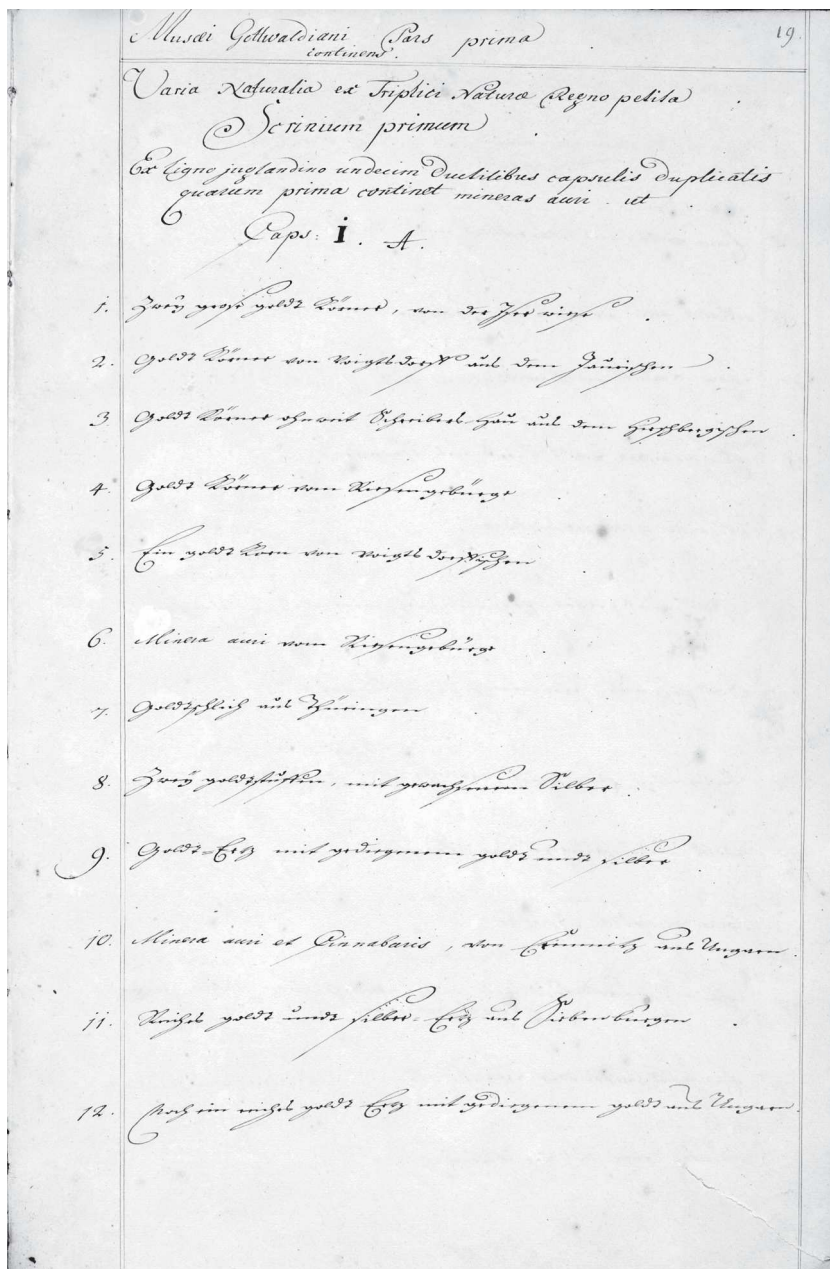 Musæi Gottwaldiani Pars prima 19.
continens.
Varia Naturalia ex Triplici Naturæ Regno petita
Scrinium primum
Ex Ligno juglandino undecim Ductilibus capsulis Duplicatis
quarum prima continet mineras auri. ut
Caps: i. A.
1. Zwey große goldt Körner, von der Iser wiese.
2. Goldt Körner von Voigtsdorff aus dem Jaurischen.
3. Goldt Körner ohnweit Schreibers-Hau aus dem Hirschbergischen.
4. Goldt Körner vom Riesengebürge.
5. Ein goldt Korn von Voigtsdorffischen.
6. Minera auri vom Riesengebürge.
7. Goldtschlich aus Thüringen.
8. Zwey goldtstuffen, mit gewachsenem Silber.
9. Goldt-Ertz mit gediegenem goldt undt silber.
10. Minera auri et Cinnabaris, von aus Ungarn.
11. Reiches goldt undt silber-Ertz aus Siebenbürgen.
12. Noch ein reiches goldt Ertz mit gediegenem goldt aus Ungarn.